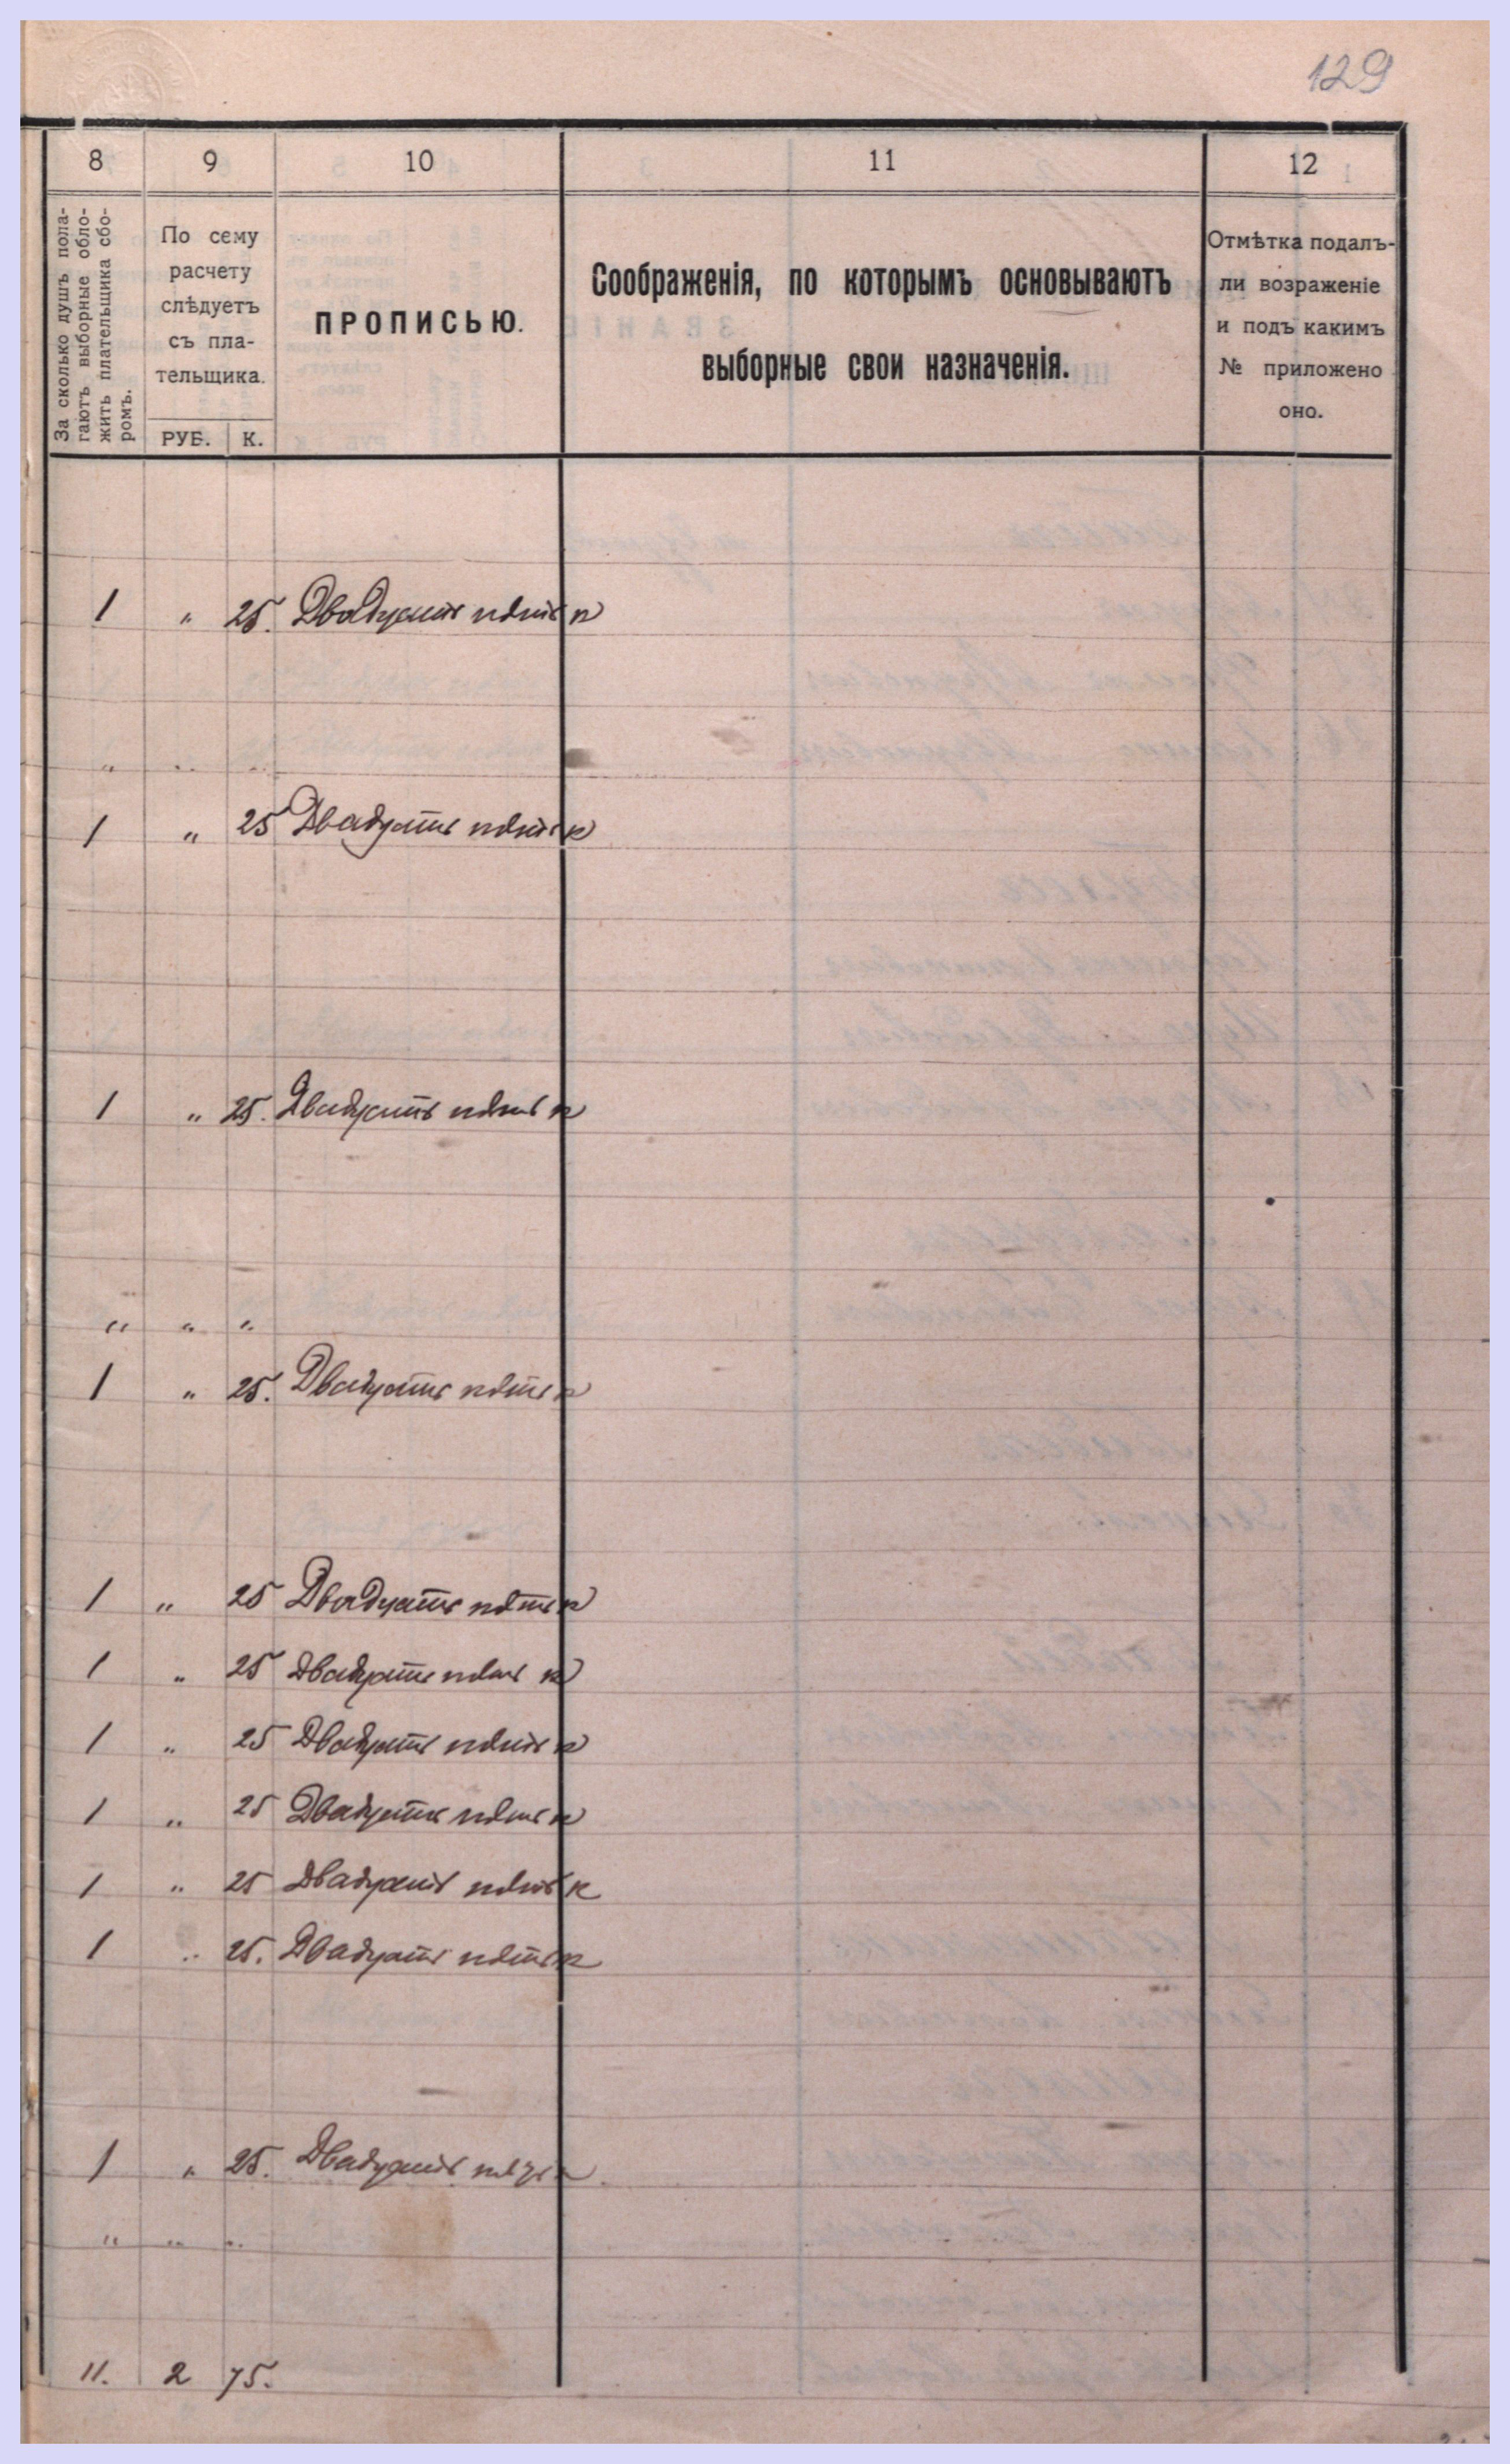 129
8 9 10 11 12
За сколько душъ пола-
гаютъ выборные обло-
жить плательщика сбо-
ромъ.
По сему
расчету
слѣдуетъ
съ пла-
тельщика.
РУБ. К.
ПРОПИСЬЮ.
Соображенія, по которымъ основываютъ
выборные свои назначенія.
Отмѣтка подалъ-
ли возраженіе
и подъ какимъ
№ приложено
оно.
1 " 25. Двадцать пять к
" " "
1 " 25 Двадцать пять к
1 " 25. Двадцать пять к
" " "
1 " 25. Двадцать пять к
1 " 25 Двадцать пять к
1 " 25 Двадцать пять к
1 " 25 Двадцать пять к
1 " 25 Двадцать пять к
1 " 25 Двадцать пять к
1 " 25. Двадцать пять к
1 " 25. Двадцать пять к
" " "
11. 2 75.